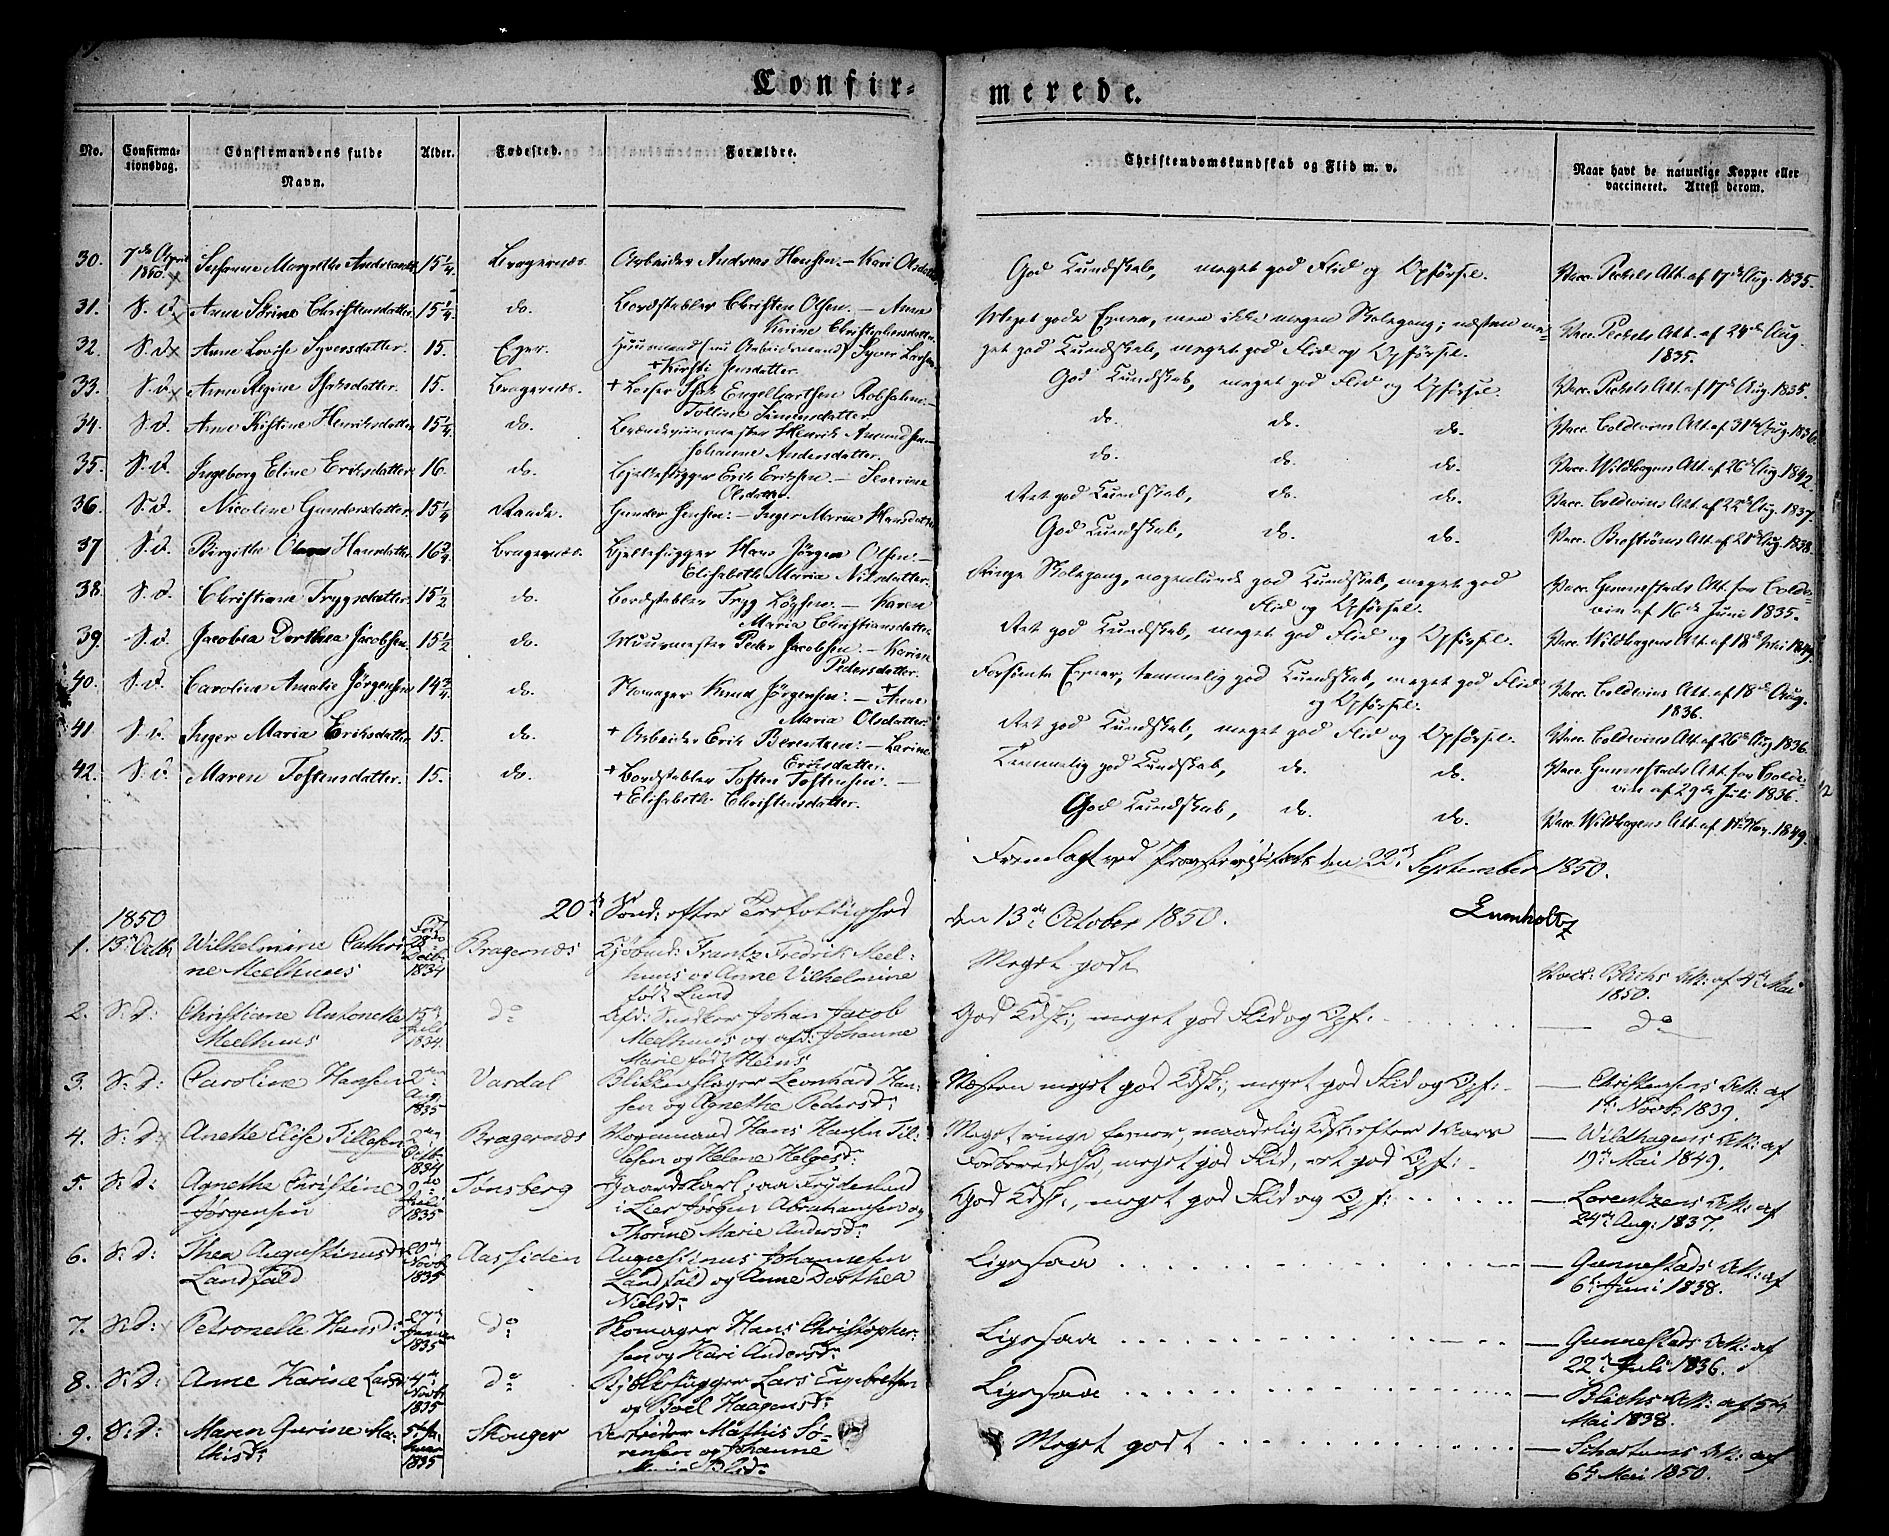 Confir-
merede.
No.
Confirma-
tionsdag.
Confirmandens fulde
Navn.
Alder.
Fødested.
Forældre.
Christendomskundskab og Flid m. v.
Naar havt de naturlige Kopper eller
vaccineret. Attest derom.
30. 7de April 1850. Margrethe Andreasd. 15 1/4. Bragernæs. Arbeider Andreas Hansen. - Kari Olsdatter God Kundskab, meget god Flid og Opførsel. Vacc. Att. af 17de Aug. 1835.
31. S. D. Anne Sørine Christensdatter. 15 1/4. do. Bordstabler Christen Olsen. - Anne
Karine Christophersdatter. Meget gode Evner, men ikke megen Skolegang; næsten me-
get god Kundskab, meget god Flid og Opførsel. Vacc. Att. af Aug.
1835.
32. S. D. Anne Lovise Syversdatter. 15. Eger. Huusmand (nu Arbeidsmand) Syver Larsen
+ Kirsti Jensdatter. God Kundskab, meget god Flid og Opførsel. Vacc. Att. af 17de Aug. 1835.
33. S. D. Anne Regine Isaksdatter. 15. Bragernæs. + Isak Engelbartsen
Simensdatter. do. do. do. Vacc. Coldevins Att. af 31te Aug. 1836.
34. S. D. Anne Kistine Henriksdatter 15 1/4. do. Henrik Amundsen -
Johanne Andersdatter. do. do. do. Vacc. Wildhagens Att. af 26de Aug. 1842.
35. S. D. Ingeborg Eline Eriksdatter. 16. do. Bjelkehugger Erik Eriksen. - Severine
Olsdatter. Ret god Kundskab, do. do. Vacc. Coldevins Att. af 22de Aug. 1837.
36. S. D. Nicoline Gundersdatter. 15 1/4 Gunder Jensen: - Inger Maria Hansdatter God Kundskab, do. do. Vacc. Att. af Aug. 1838.
37 S. D. Birgithe Hansdatter. 16 3/4. Bragernæs. Bjelkehugger Hans Jørgen Olsen: -
Elisabeth Maria Nilsdatter. Ringe Skolegang, nogenlunde god Kundskab, meget god
Flid og Opførsel. Vacc. Gunnestads Att. for Colde-
vin af 16de Juni 1835.
38. S. D. Christiane Trygsdatter. 15 1/2 do. Bordstabler Tryg - Karen
Maria Christiansdatter. Ret god Kundskab, meget god Flid og Opførsel. Vacc. Wildhagens Att. af 18de Mai 1849.
39. S. D. Jacobea Dorthea Jacobsen. 15 1/2 do. Muurmester Peder Jacobsen. - Karine
Pedersdatter. Forsømte Evner, temmelig god Kundskab, meget god Flid
og Opførsel. Vacc. Coldevins Att. af 18de Aug.
1836.
40. S. D. Caroline Amalie Jørgensen 14 3/4. do. Skomager Knud Jørgensen: - + Anne
Maria Olsdatter. Ret god Kundskab, meget god Flid og Opførsel. Vacc. Coldevins Att. af 26de Aug. 1836.
41 S. D. Inger Maria Eriksdatter. 15. do. + Arbeider Erik Berentsen: - Karine
Eriksdatter. Temmelig god Kundskab, do. do. Vacc. Gunnestads Att. for Colde-
vin af 29de Juli 1836.
42. S. D. Maren Tostensdatter. 15. do. + Bordstabler Tosten Tostensen. -
+ Elisabeth Christensdatter. God Kundskab, do. do. Vacc. Wildhagens Att. af Nov. 1849.
Fremlagt ved Provstevisitats den 22de September 1850.
Lumholtz
1850 20de Sønd: efter Trefoldighed den 13de October 1850.
1. 13de Octb: Wilhelmine Cathri-
ne Meelhuus 1834 Bragernæs Kjøbmd: Frantz Fredrik Meel-
huus og Anne Vilhelmine
født Lund Meget godt Vacc: Blichs Att: af 4de Mai
1850.
2. S: D: Christiane Antonette
Meelhuus 15de Juli 1834. do Afd: Johan Jacob
Meelhuus og afd: Johanne
Marie født Heins God Kdsk:, meget god Flid og Opf: — do —
3. S: D: Caroline Hansen 2den Aug: 1835 Vardal Blikkenslager Leonhard Han-
sen og Agnethe Pedersd: Næsten meget god Kdsk:, meget god Flid og Opf: — Christensens Att: af
1ste Novb: 1839.
4. S: D: Anette Elise Tillesen 1834 Bragernæs Vognmand Hans Hansen Til-
lesen og Helene Helgesd: Meget ringe Evner, maadelig Kdsk: efter Aars
Forberedelse, meget god Flid, ret god Opf: — Wildhagens Att: af
19de Mai 1849.
5. S: D: Agnethe Christine
Jørgensen Juli 1835 Tønsberg Gaardskarl paa Frydenlund
i Lier Jørgen Abrahamsen og
Thorine Marie Andersd: God Kdsk:, meget god Flid og Opf: — Lorentzens Att: af
24de Aug: 1837.
6. S: D: Thea Augustinusd:
Landfald 20de Novb: 1835 Aassiden Augustinus Johannesen
Landfald og Anne Dorthea
Nielsd: Ligesaa — Gunnestads Att: af
6te Juni 1838.
7. S: D: Petronelle Hansd: 27de Januar 1835 do Skomager Hans Christopher-
sen og Kari Andersd: Ligesaa — Gunnestads Att: af
22de Juli 1836.
8. S: D: Anne Karine Larsd: 4de Novb: 1835 do Bjelkehugger Lars Engebretsen
og Boel Haagensd: Ligesaa — Blichs Att: af 5te
Mai 1838.
9. S: D: Maren Gurine Ma-
thisd: 5te Januar 1835 Skouger Arbeider Mathis Sø-
rensen og Johanne
Maria Nilsd: Meget godt — Att: af
6te Mai 1850.